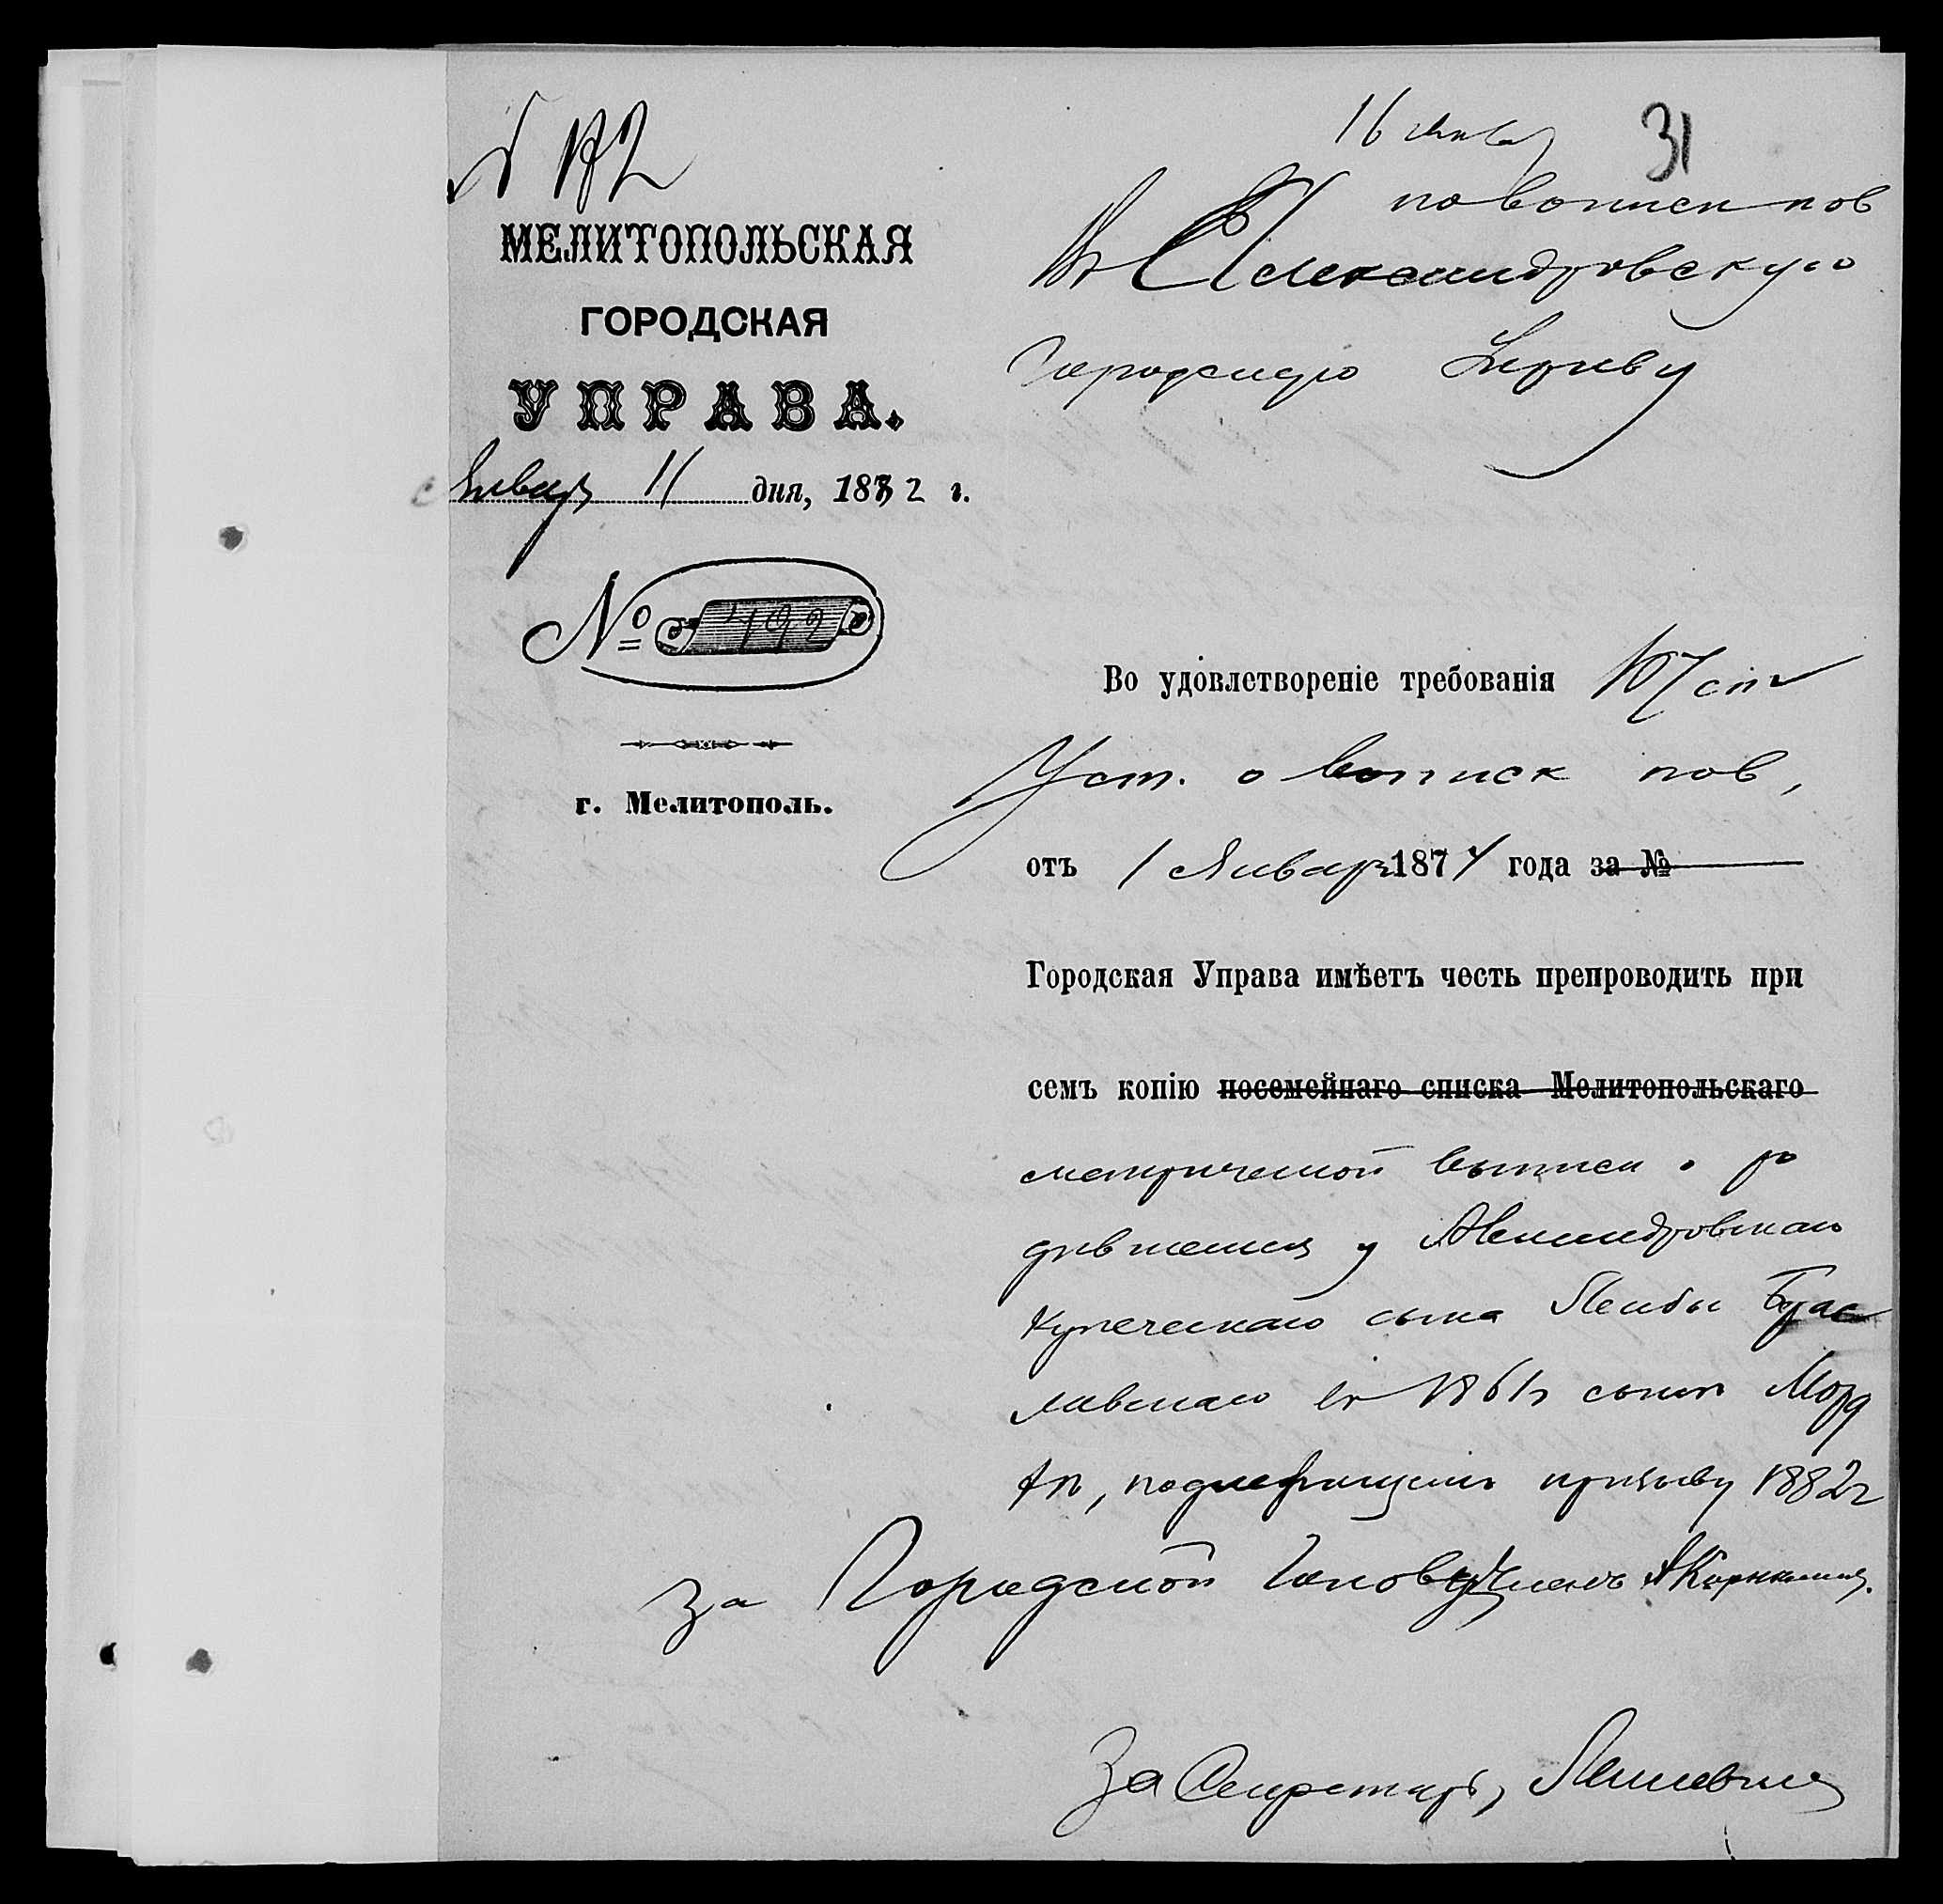 МЕЛИТОПОЛЬСКАЯ
ГОРОДСКАЯ
УПРАВА.
Январ 11 дня, 1882 г.
№ 192
г. Мелитополь.
16 янв
31
по воинск пов
Въ Александровскую
Городскую Управу
Во удовлетвореніе требованія 107 ст
Уст. о воинск пов,
отъ 1 Января 1874 года за №
Городская Управа имѣетъ честь препроводить при
семъ копію посемейнаго списка Мелитопольскаго
метрической выписи о ро
жденіи у Александровскаго
купеческаго сына Лейбы Брас
лавскаго въ 1861г сына Морд
ка, подлежащемъ призыву 1882г
За Городской Голову Членъ
За Секретаря